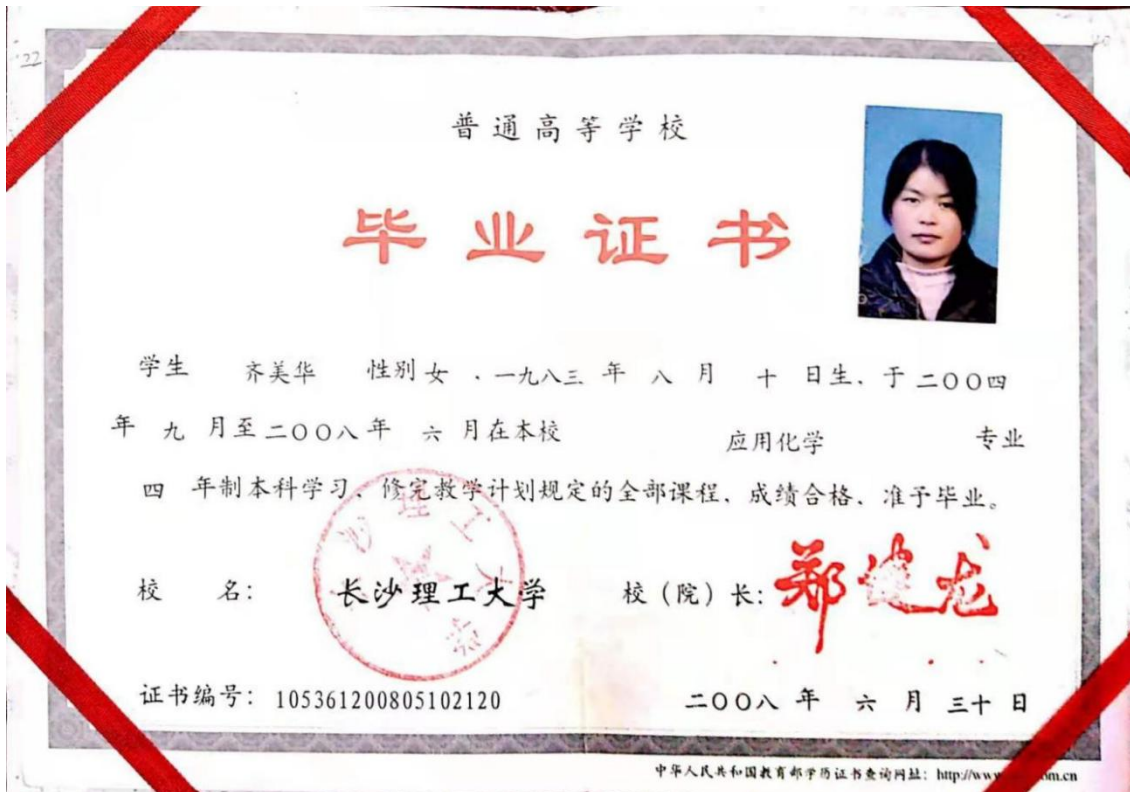 普通高等学校
毕业证书
学生 齐美华 性别 女 、一九八三 年 八 月 十 日生、于 二〇〇四
年 九 月至 二〇〇八 年 六 月在本校 应用化学 专业
四 年制本科学习、修完教学计划规定的全部课程、成绩合格、准予毕业。
校 名： 长沙理工大学 校（院）长： 郑健龙
沙理工大学
证书编号： 105361200805102120 二〇〇八 年 六 月 三十 日
中华人民共和国教育部学历证书查询网址： http://www om.cn